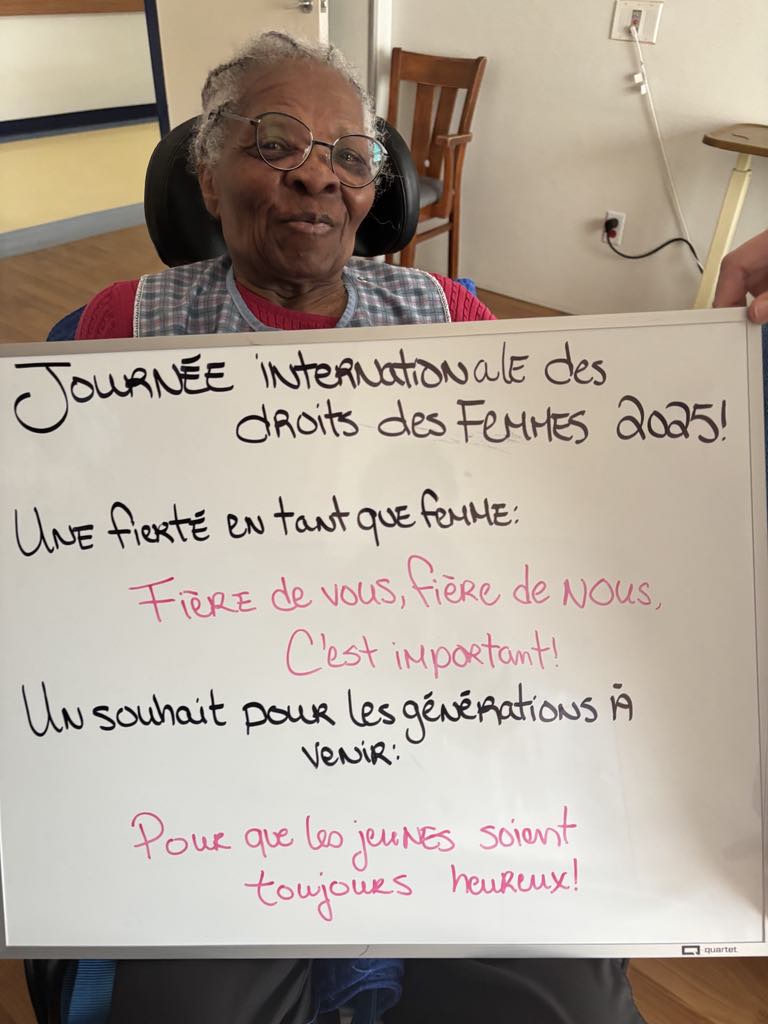 JOURNÉE INTERNAtIONALE des
droits des FEMMES 2025!
UNE fierté en tant que femme:
Fière de vous, fière de nous,
C'est important!
Un souhait pour les générations À
venir:
Pour que les jeunes soient
toujours heureux!
quartet